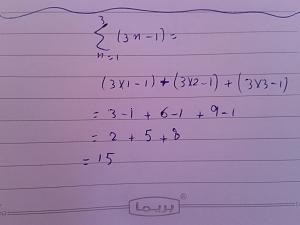 3
Σ (3n-1) =
n=1
(3×1-1) + (3×2-1) + (3×3-1)
= 3-1 + 6-1 + 9-1
= 2 + 5 + 8
= 15
بريما ®